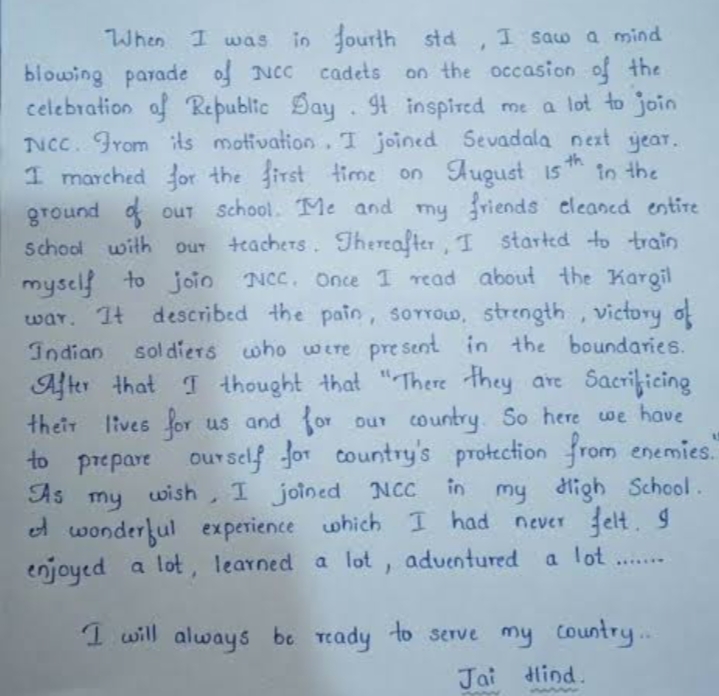 When I was in fourth std , I saw a mind
blowing parade of NCC cadets on the occasion of the
celebration of Republic Day . It inspired me a lot to join
NCC. From its motivation , I joined Sevadala next year.
I marched for the first time on August 15th in the
ground of our school. Me and my friends cleaned entire
school with our teachers . Thereafter , I started to train
myself to join NCC. Once I read about the Kargil
war. It described the pain , sorrow, strength , victory of
Indian soldiers who were present in the boundaries.
After that I thought that "There they are Sacrificing
their lives for us and for our country. So here we have
to prepare ourself for country's protection from enemies."
As my wish , I joined NCC in my High School.
A wonderful experience which I had never felt. I
enjoyed a lot , learned a lot , adventured a lot .......
I will always be ready to serve my country..
Jai Hind.